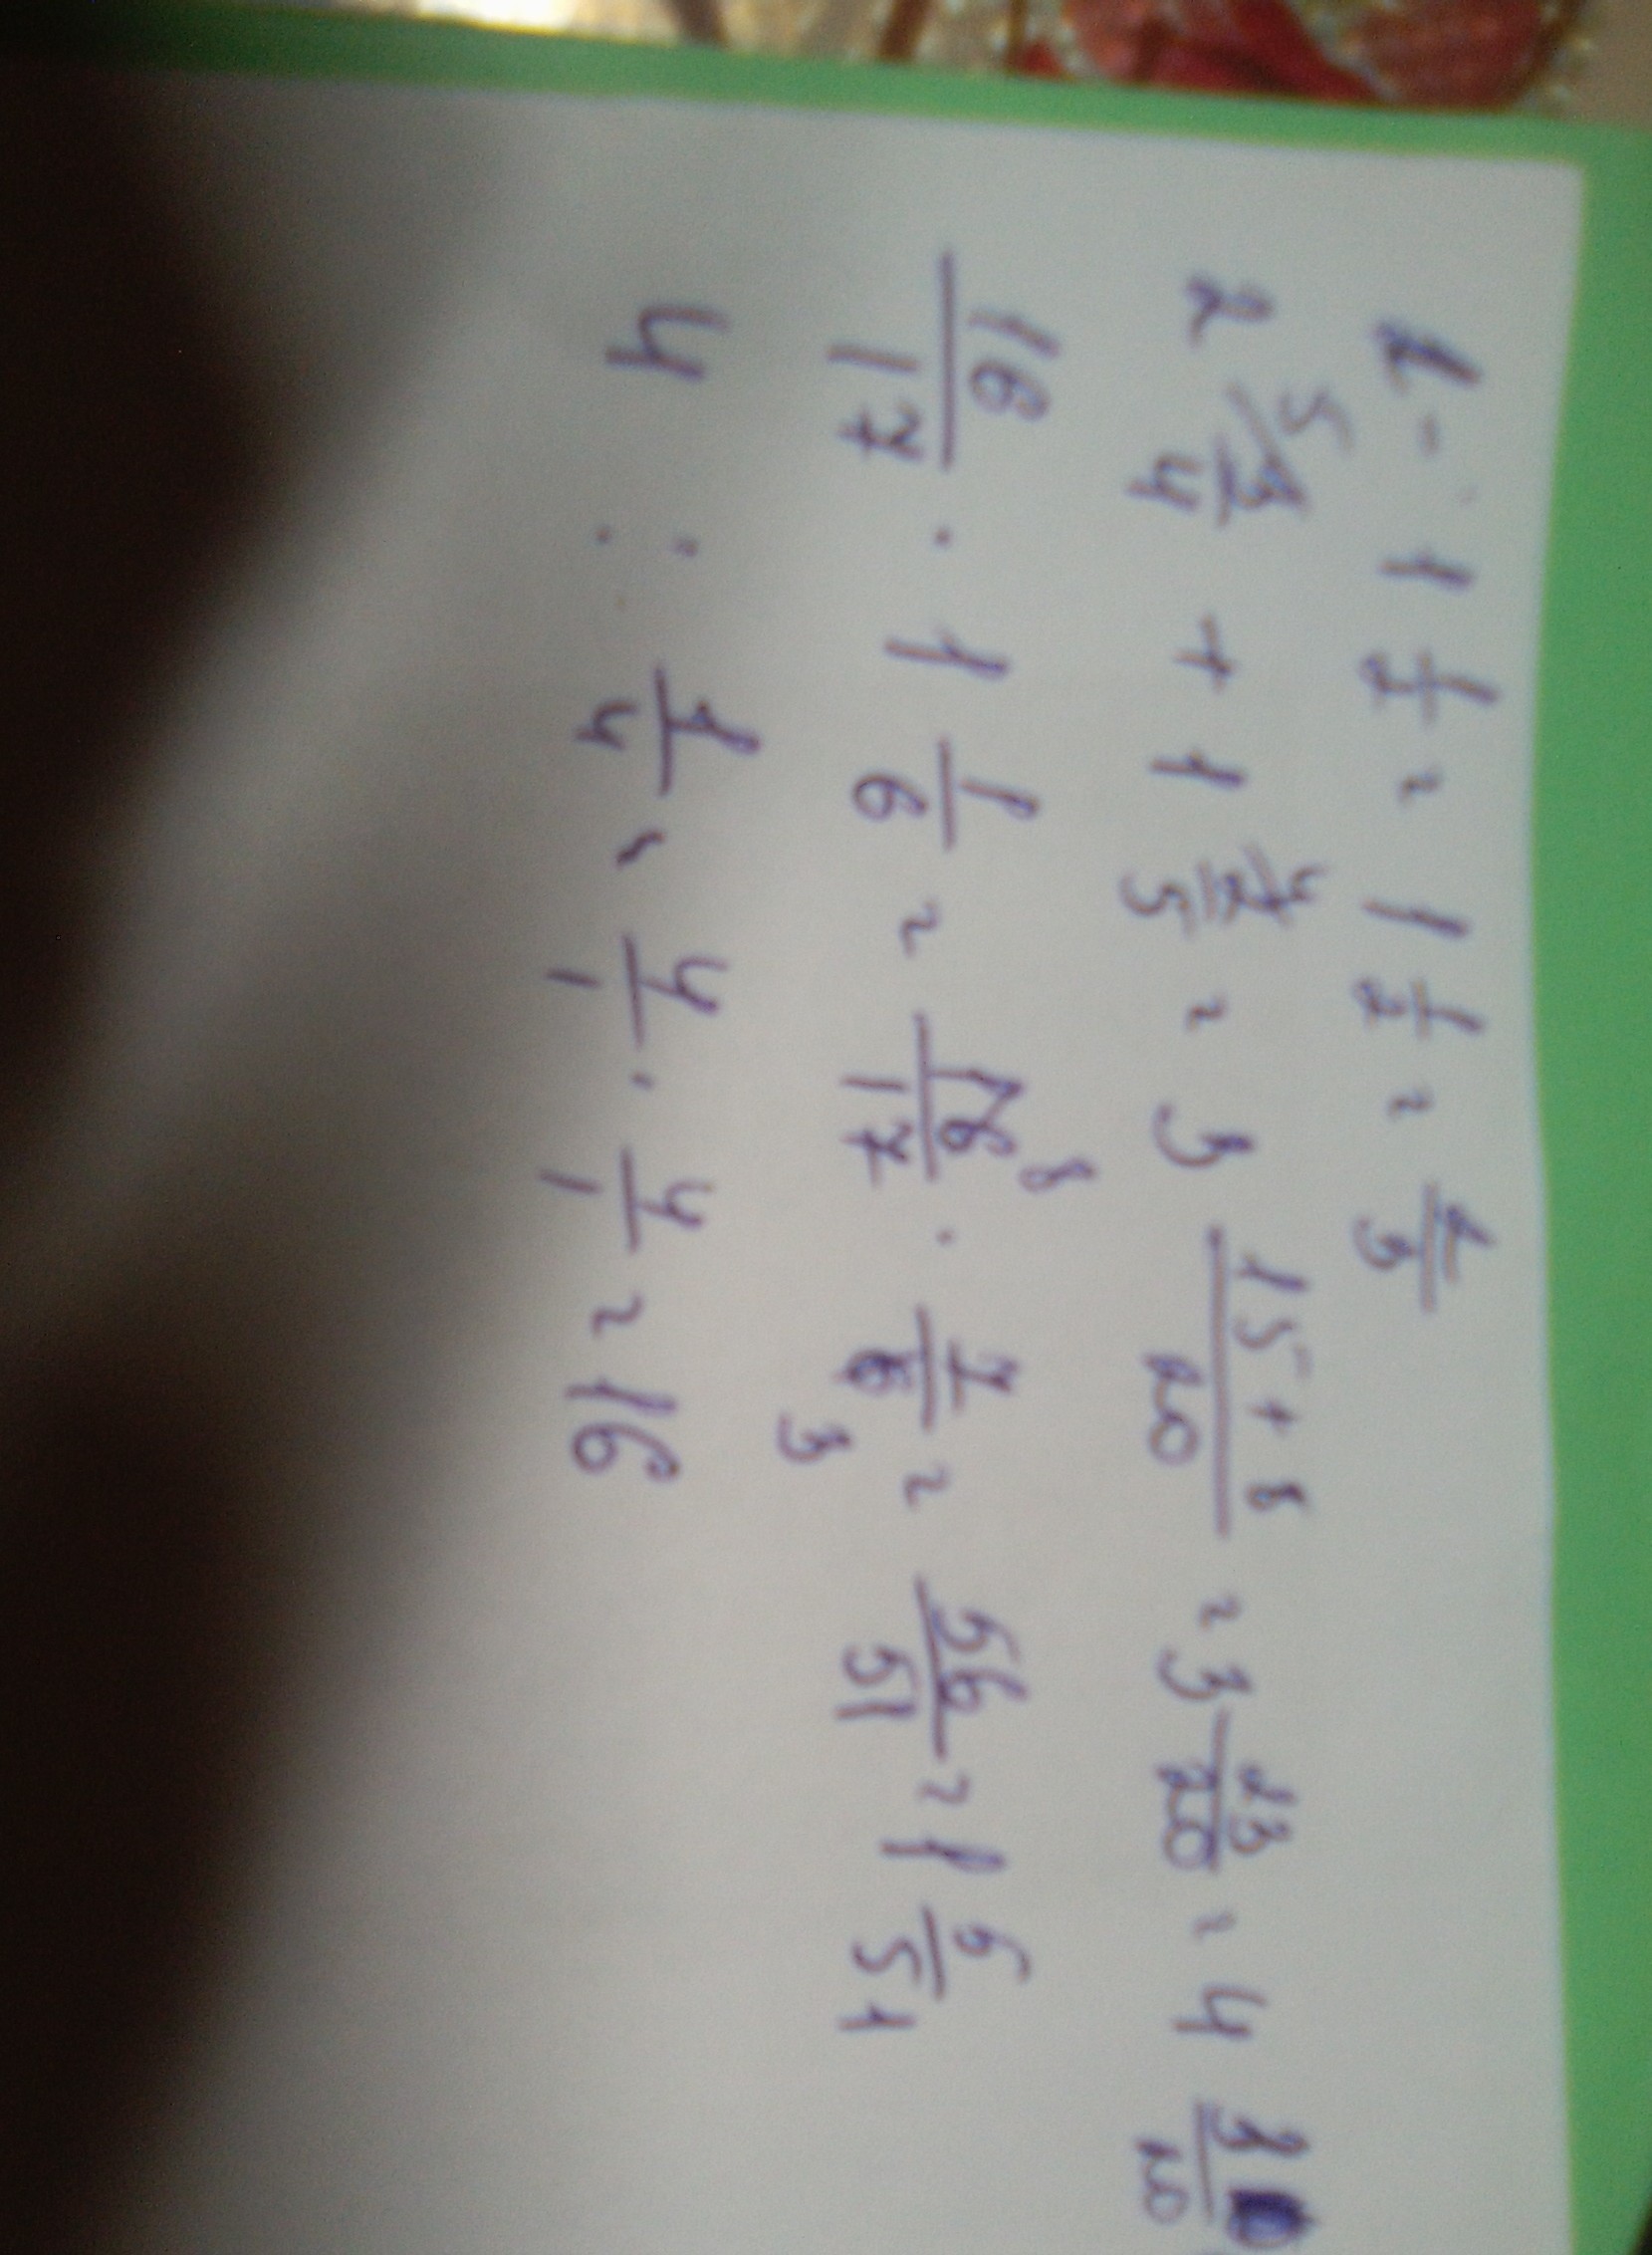 1 - 1 1/2 = 1 1/2 = 2/3
2 3/4 + 1 2/5 = 3 15+8/20 = 3 23/20 = 4 3/20
16/17 · 1 1/6 = 16/17 · 7/6 = 56/51 = 1 5/51
4 : 1/4 = 4/1 · 4/1 = 16